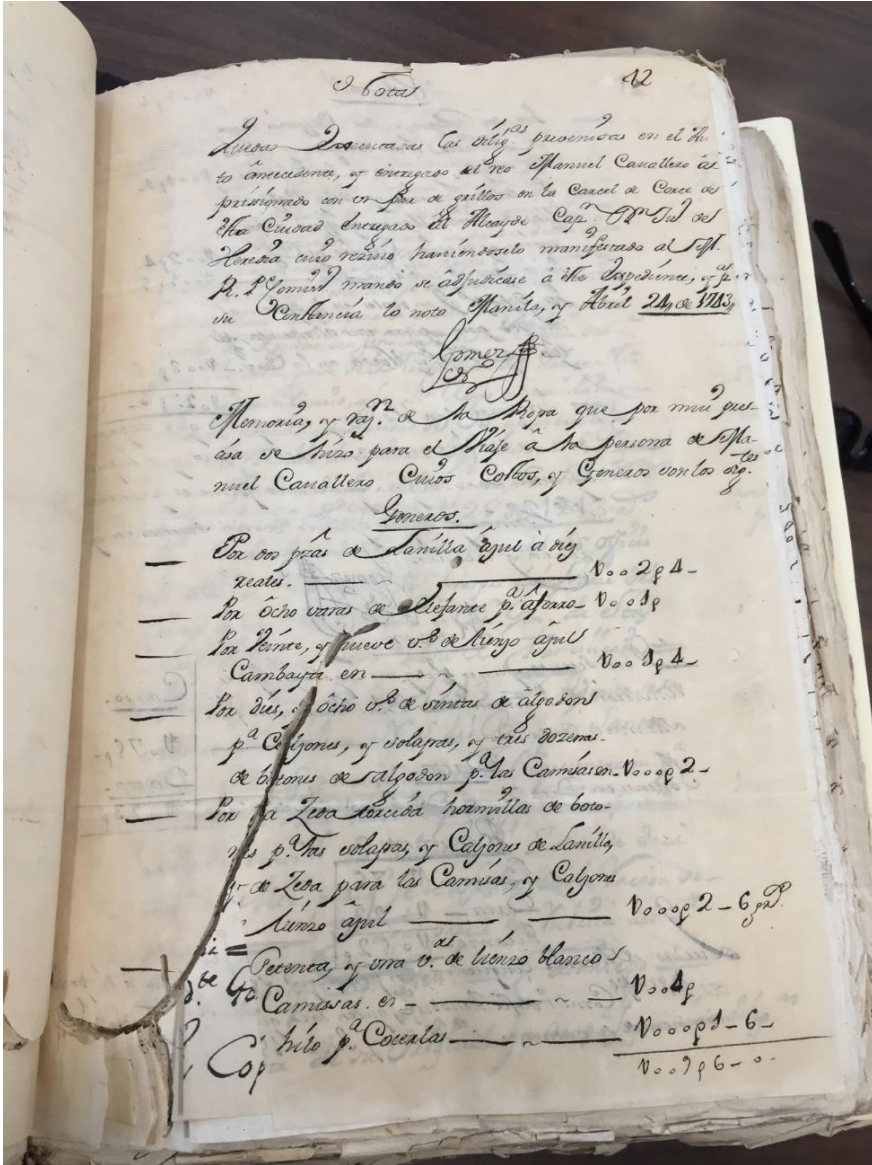 Nota
42
Quedan Executadas las dilig.as prevenidas en el Au-
to antecedente, y entregado el reo Manuel Cavallero a
prissionado con un par de grillos en la Carcel de Corte de
esta Ciudad entregado al Alcayde Cap.n D.n de
Heredia cuio reziuo haviendoselo manifestado al M.
R. P. Comiss.o mando se adjudicase à este Expediente, y p.a
su Constancia lo noto Manila, y Abril 24,, de 1743,,
Gomez
Memoria, y raz.n de la Ropa que por mui pres-
asa se hizo para el Viaje â la persona de Ma-
nuel Cavallero Cuios Costos, y Generos son los sig.tes
Generos.
Por dos pzas de Lanilla âzul à diez
reales. V..2p4-
Por ôcho varas de Elefante p.a âforro- V..1p
Por Veinte, y nueve v.s de lienzo âzul
Cambaya en V..1p4-
Por dies, y ôcho v.s de sintas de âlgodon
p.a Calzones, y solapas, y tres dozenas
de botones de Algodon p.a las Camisas en- V...p2-
Por la Zeda torcida hormillas de boto-
nes p.a las solapas, y Calzones de Lanilla,
y de Zeda para las Camisas, y Calzones
lienzo âzul V...p2-6
Setenta, y una v.as de lienzo blanco
Camissas en V..4p
hilo p.a Coserlas V...p1-6-
V..9p6-0-